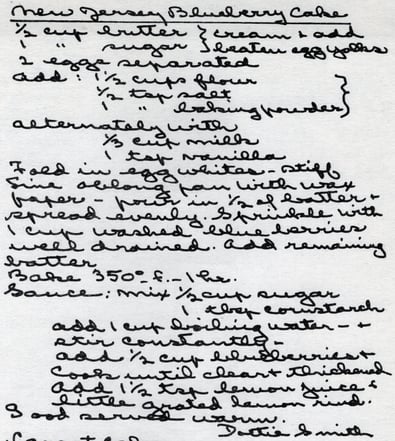 New Jersey Blueberry Cake
1/2 cup butter } cream & add
1 " sugar } beaten egg yolks
2 eggs separated
add: 1 1/2 cups flour
1/2 tsp salt
1 " baking powder }
alternately with
1/3 cup milk
1 tsp vanilla
Fold in egg whites - stiff
Line oblong pan with wax
paper - pour in 1/2 of batter +
spread evenly. Sprinkle with
1 cup washed blueberries
well drained. Add remaining
batter
Bake 350°-f. - 1 hr.
Sauce: Mix 1/2 cup sugar
1 tbsp cornstarch
add 1 cup boiling water - +
stir constantly -
add 1/2 cup blueberries +
cook until clear + thickened
Add 1 1/2 tsp lemon juice &
little grated lemon rind.
Good served warm.
Dottie Smith